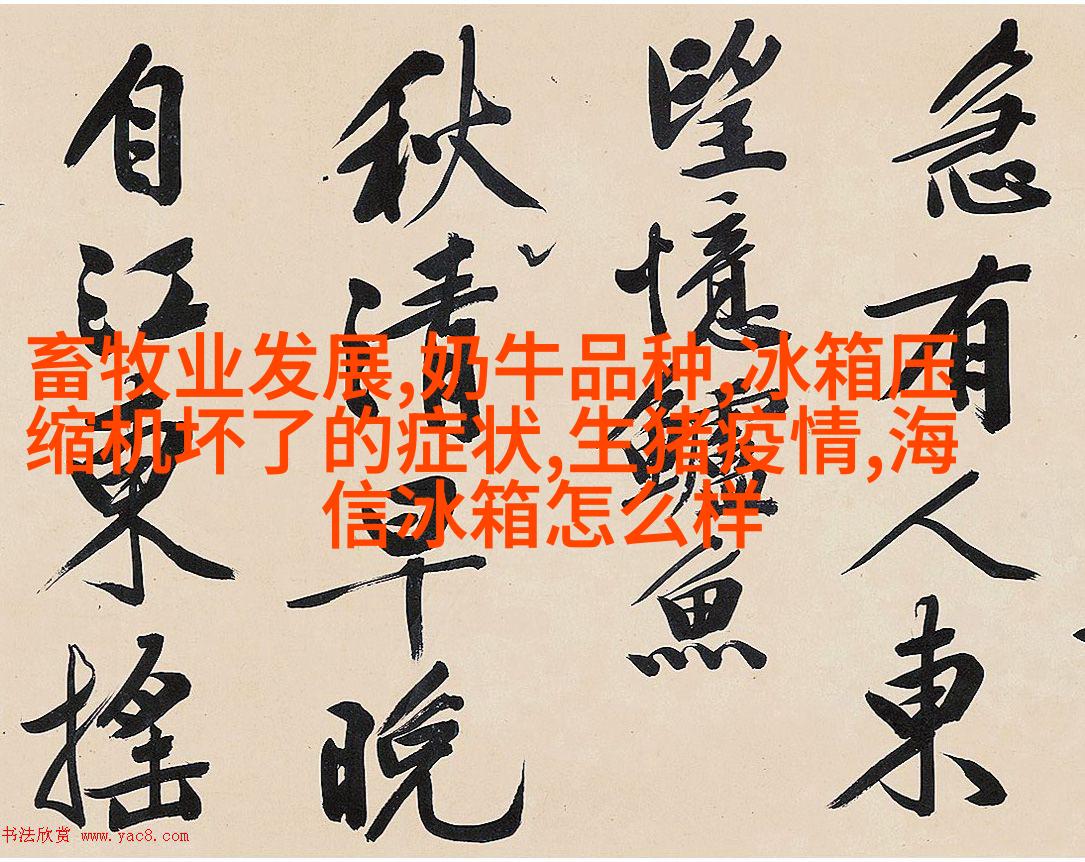 急有人東
望憶鱸魚
秋清早晚
自江東搖
畜牧业发展,奶牛品种,冰箱压
缩机坏了的症状,生猪疫情,海
信冰箱怎么样
书法欣赏 www.yac8.com